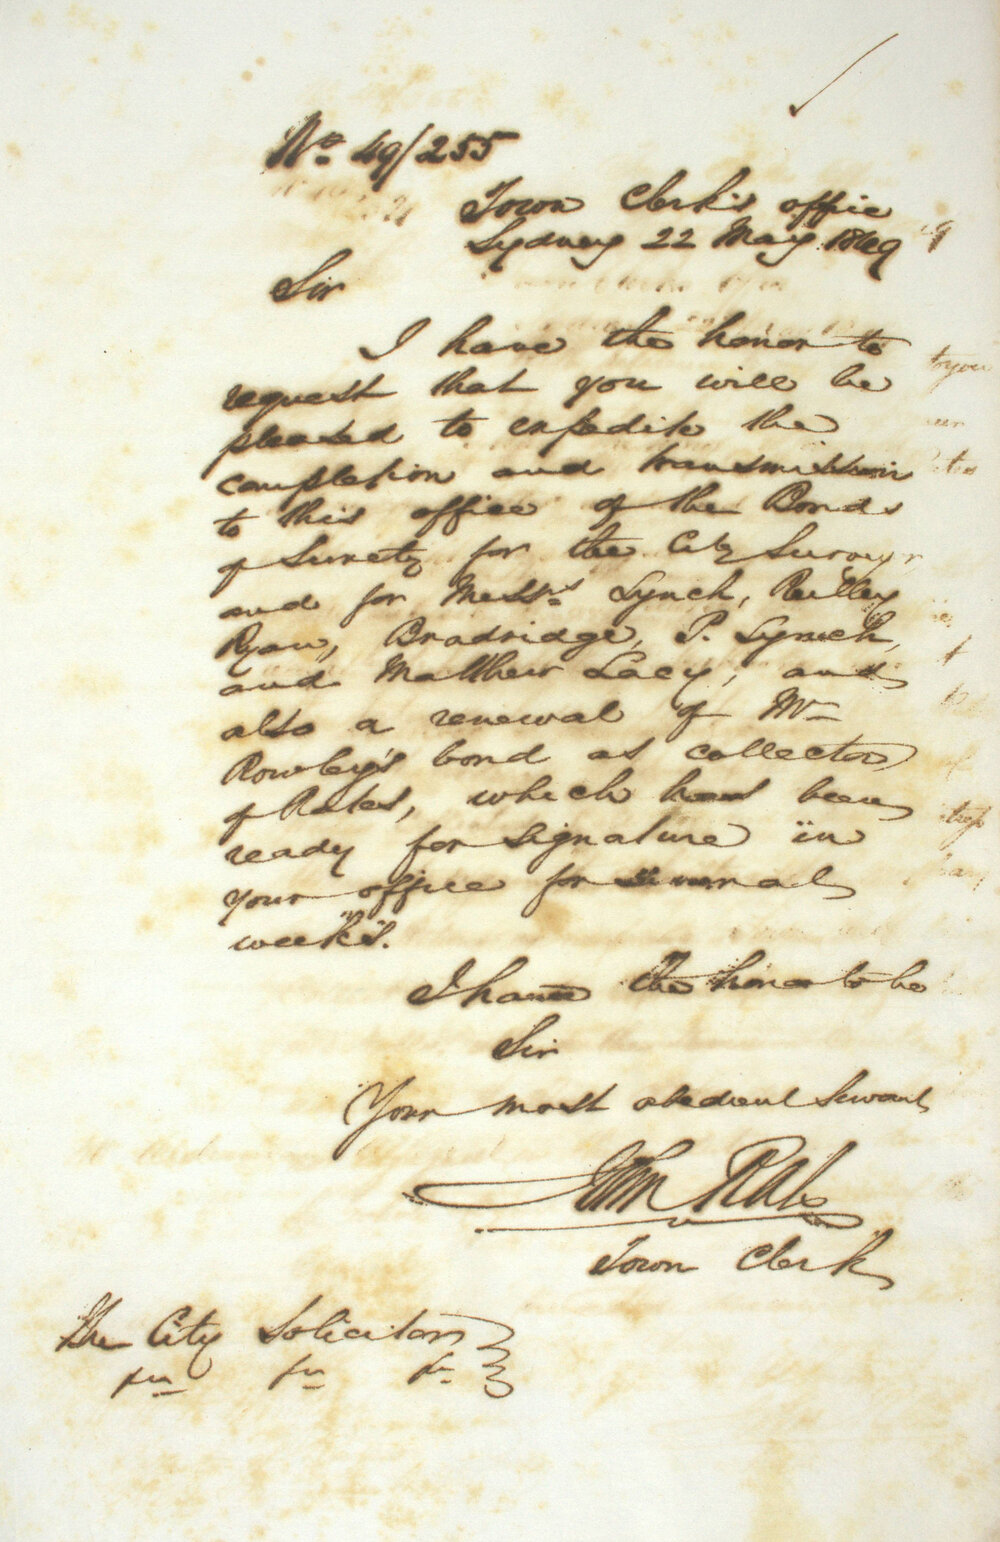 No. 49/255
Town Clerk's office
Sydney 22 May 1849
Sir
I have the honor to
request that you will be
pleased to expedite the
completion and transmission
to this office of the Bonds
of Surety for the City Surveyor
and for Messrs. Lynch, Reilley
Ryan, Bradridge, P. Lynch,
and Matthew Lacy; and
also a renewal of Mr
Rowley's bond as collector
of Rates, which has been
ready for signature in
your office for several
weeks.
I have the honor to be
Sir
Your most obedient Servant
John Rae
Town Clerk
The City Solicitor